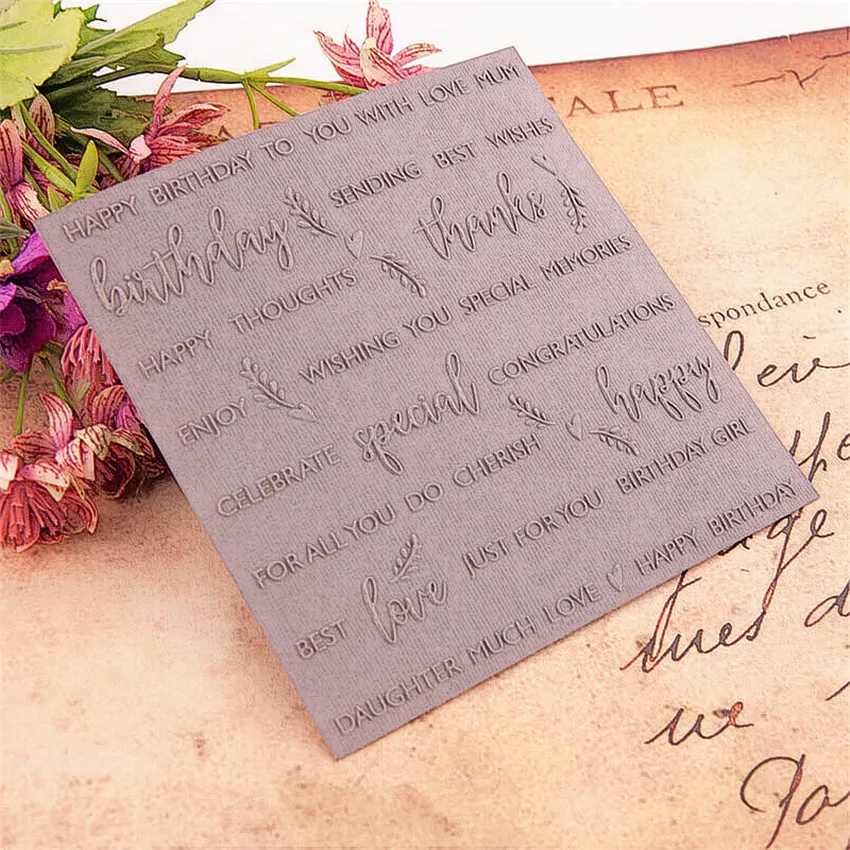 HAPPY BIRTHDAY TO YOU WITH LOVE MUM
birthday SENDING BEST WISHES
thanks
HAPPY THOUGHTS
WISHING YOU SPECIAL MEMORIES
ENJOY
special CONGRATULATIONS
CELEBRATE happy
FOR ALL YOU DO CHERISH
JUST FOR YOU BIRTHDAY GIRL
BEST love
DAUGHTER MUCH LOVE HAPPY BIRTHDAY
ALE
spondance
ues
ue
Pa